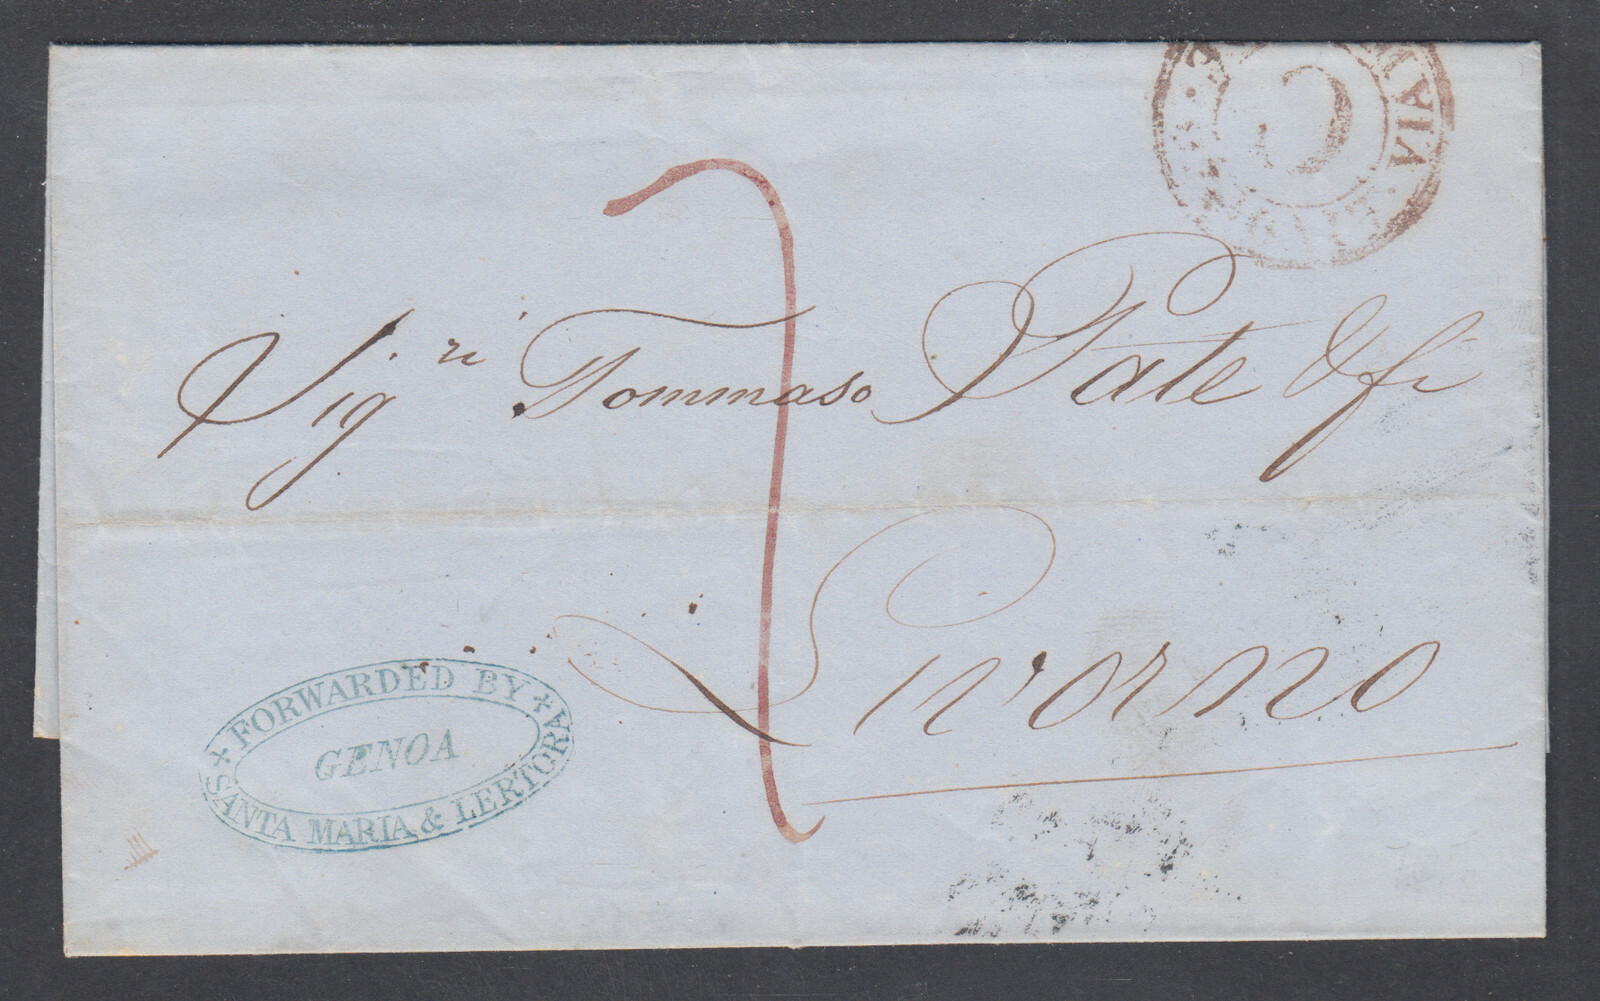 Sig.ri Tommaso Pate & fi
Livorno
FORWARDED BY
GENOA
SANTA MARIA & LERTORA